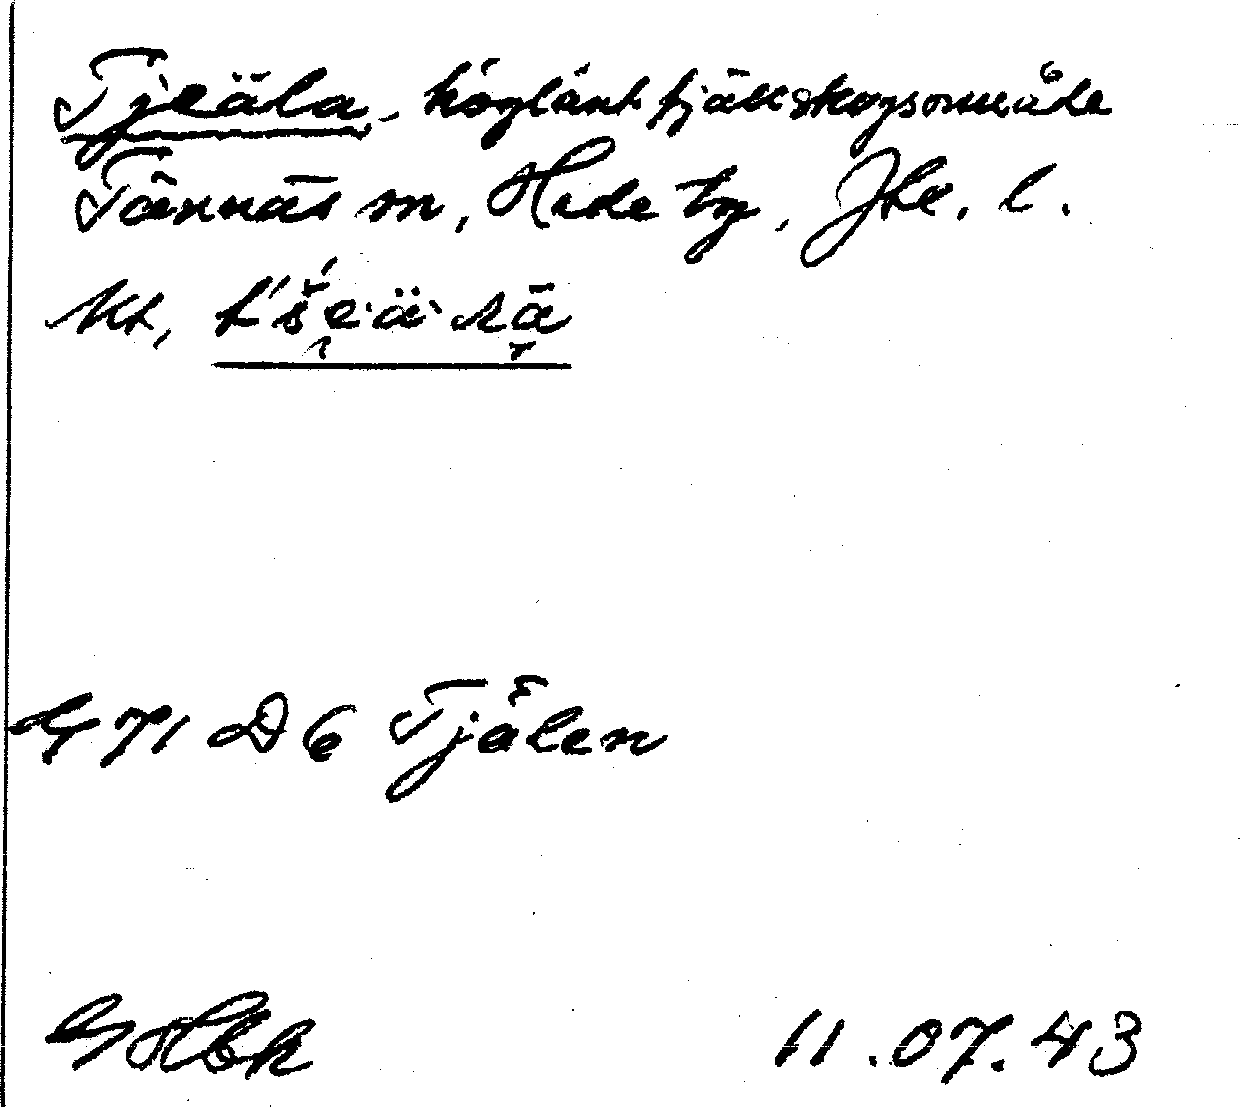 Tjeäla, höglänt fjällskogsområde
Tännäs sn, Hede tg, Jtl. l.
Kt,
G 71 D6 Tjålen
11.07.43